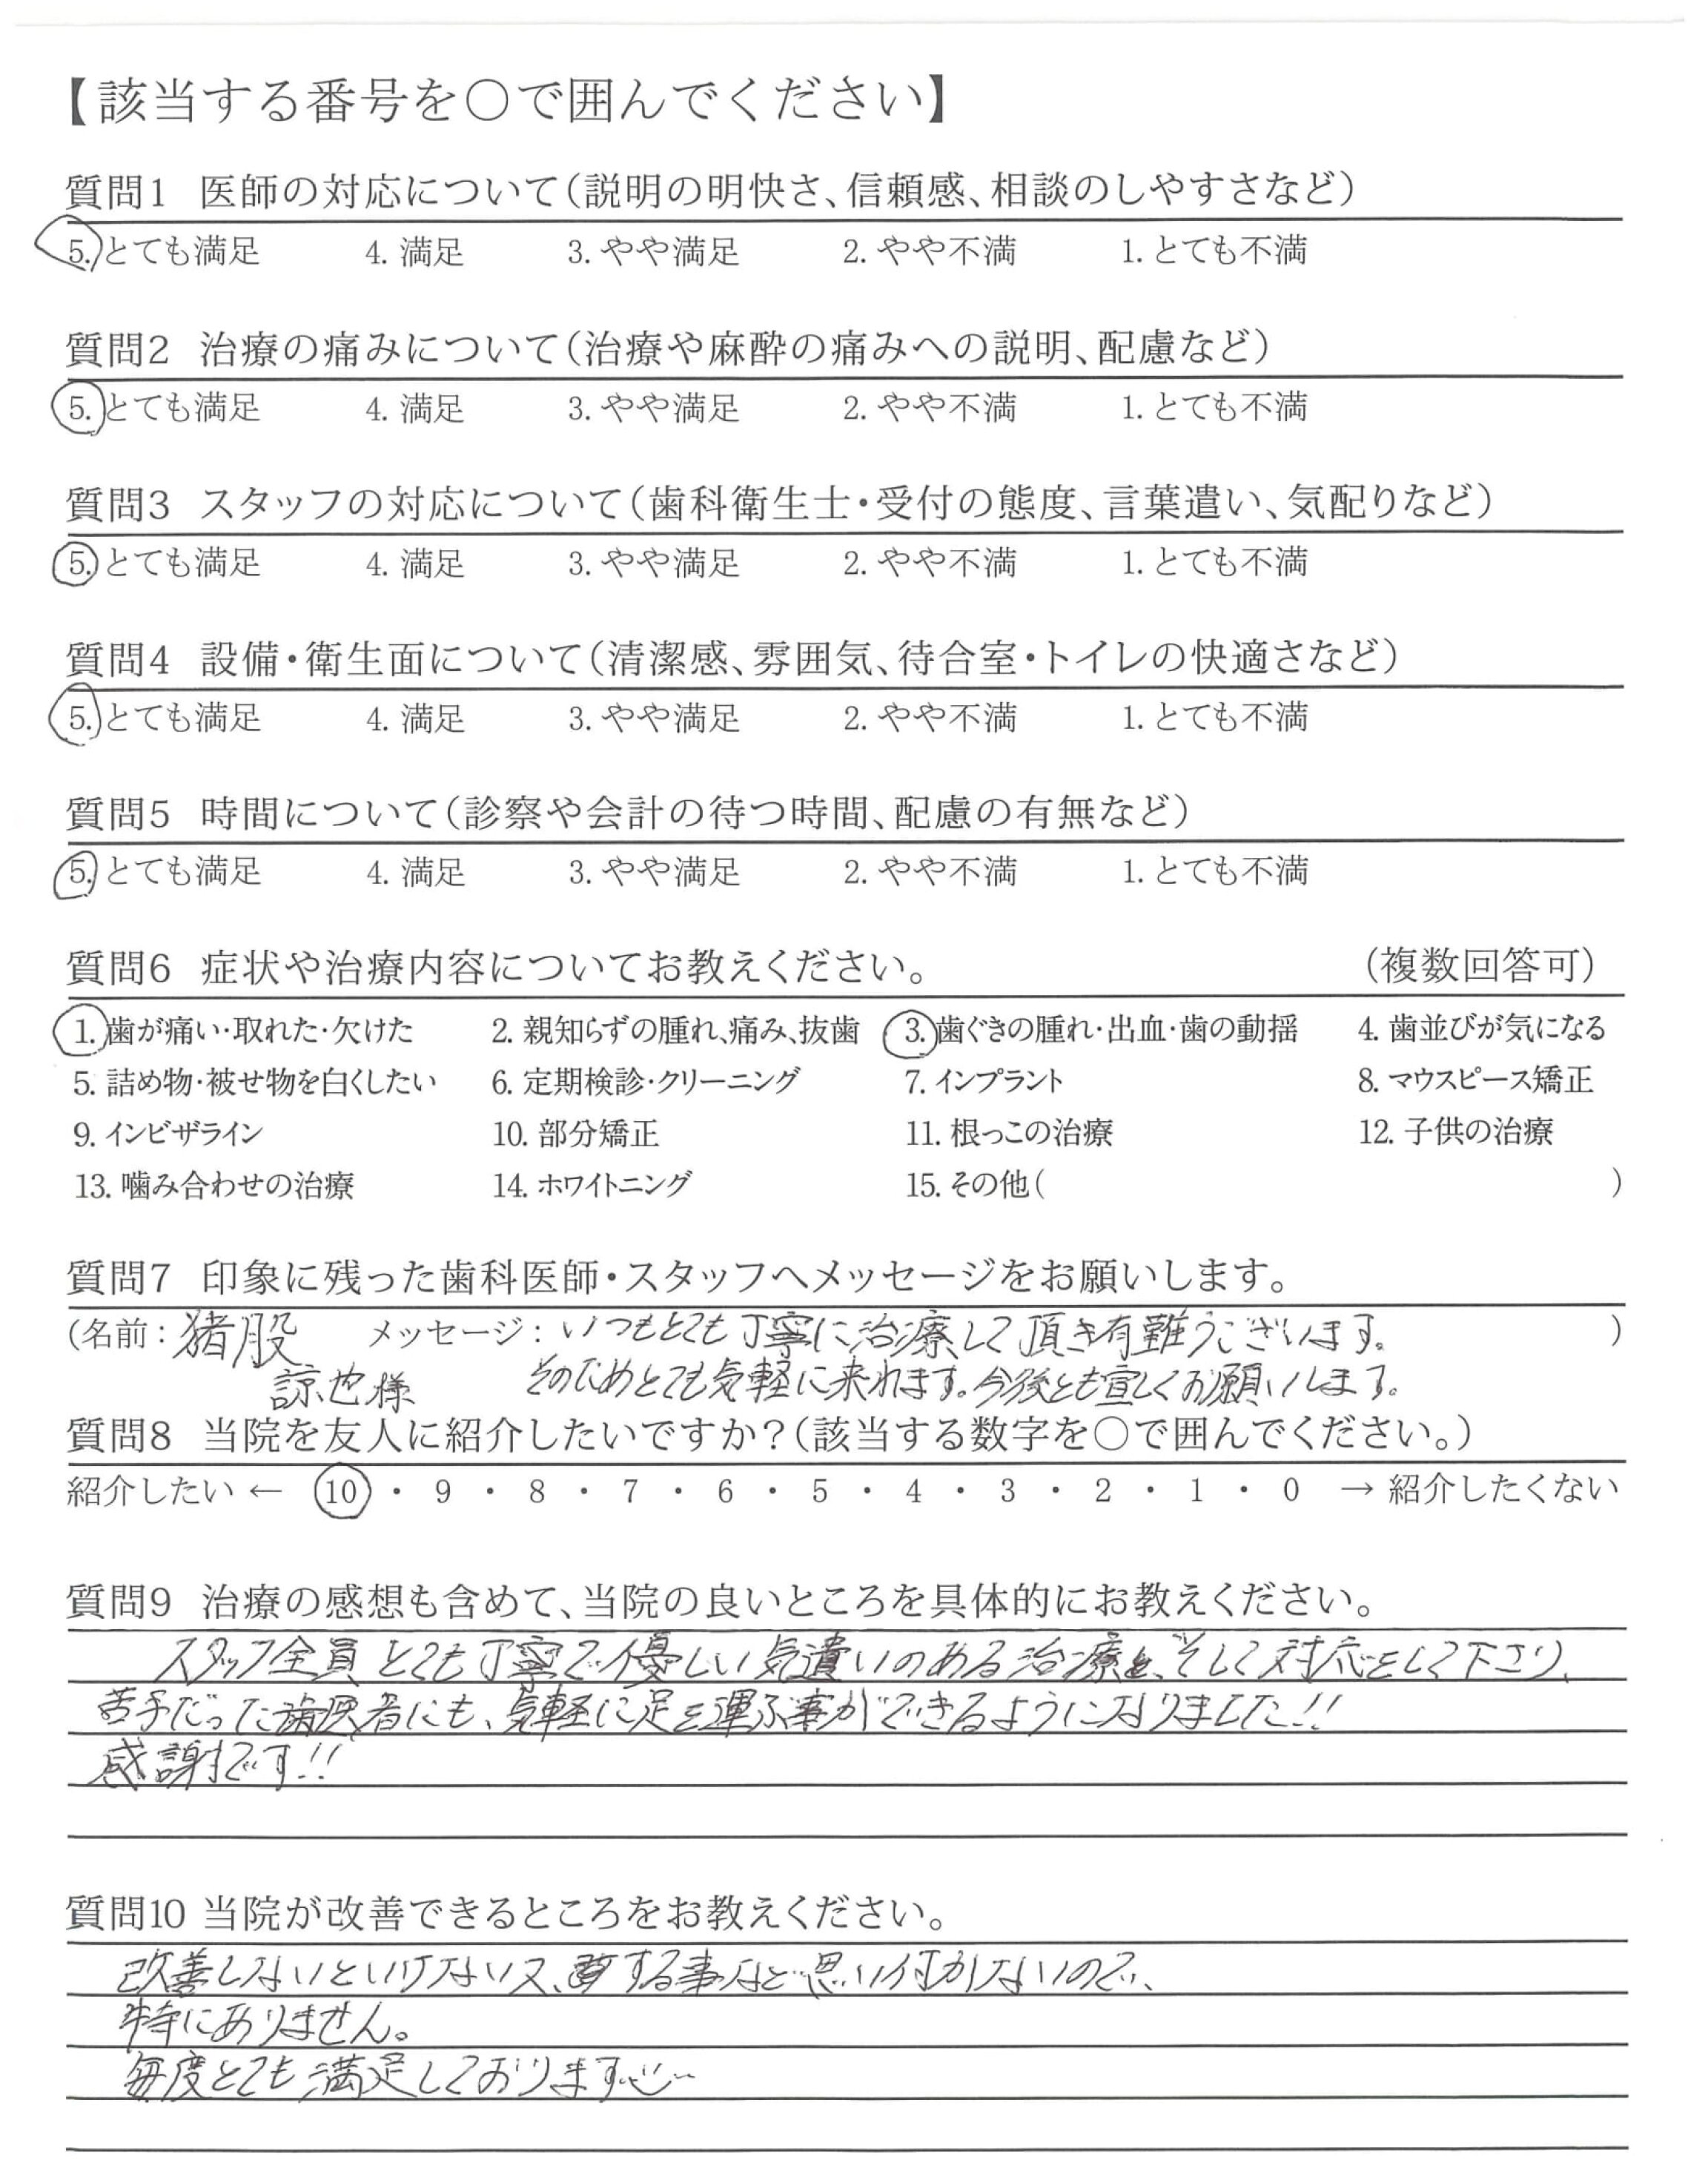 【該当する番号を○で囲んでください】
質問1 医師の対応について(説明の明快さ、信頼感、相談のしやすさなど)
5. とても満足 4. 満足 3. やや満足 2. やや不満 1. とても不満
質問2 治療の痛みについて(治療や麻酔の痛みへの説明、配慮など)
5. とても満足 4. 満足 3. やや満足 2. やや不満 1. とても不満
質問3 スタッフの対応について(歯科衛生士・受付の態度、言葉遣い、気配りなど)
5. とても満足 4. 満足 3. やや満足 2. やや不満 1. とても不満
質問4 設備・衛生面について(清潔感、雰囲気、待合室・トイレの快適さなど)
5. とても満足 4. 満足 3. やや満足 2. やや不満 1. とても不満
質問5 時間について(診察や会計の待つ時間、配慮の有無など)
5. とても満足 4. 満足 3. やや満足 2. やや不満 1. とても不満
質問6 症状や治療内容についてお教えください。 (複数回答可)
1. 歯が痛い・取れた・欠けた 2. 親知らずの腫れ、痛み、抜歯 3. 歯ぐきの腫れ・出血・歯の動揺 4. 歯並びが気になる
5. 詰め物・被せ物を白くしたい 6. 定期検診・クリーニング 7. インプラント 8. マウスピース矯正
9. インビザライン 10. 部分矯正 11. 根っこの治療 12. 子供の治療
13. 噛み合わせの治療 14. ホワイトニング 15. その他( )
質問7 印象に残った歯科医師・スタッフへメッセージをお願いします。
(名前: 猪股 メッセージ: いつもとても丁寧に治療して頂き有難うございます。 )
諒也様 そのためとても気軽に来れます。今後とも宜しくお願いします。
質問8 当院を友人に紹介したいですか?(該当する数字を○で囲んでください。)
紹介したい ← 10 ・ 9 ・ 8 ・ 7 ・ 6 ・ 5 ・ 4 ・ 3 ・ 2 ・ 1 ・ 0 → 紹介したくない
質問9 治療の感想も含めて、当院の良いところを具体的にお教えください。
スタッフ全員とても丁寧で優しい気遣いのある治療を、そして対応をして下さり、
苦手だった歯医者にも、気軽に足を運ぶ事ができるようになりました!!
感謝です!!
質問10 当院が改善できるところをお教えください。
改善しないといけない又、要する事など思い付かないので、
特にありません。
毎度とても満足しております